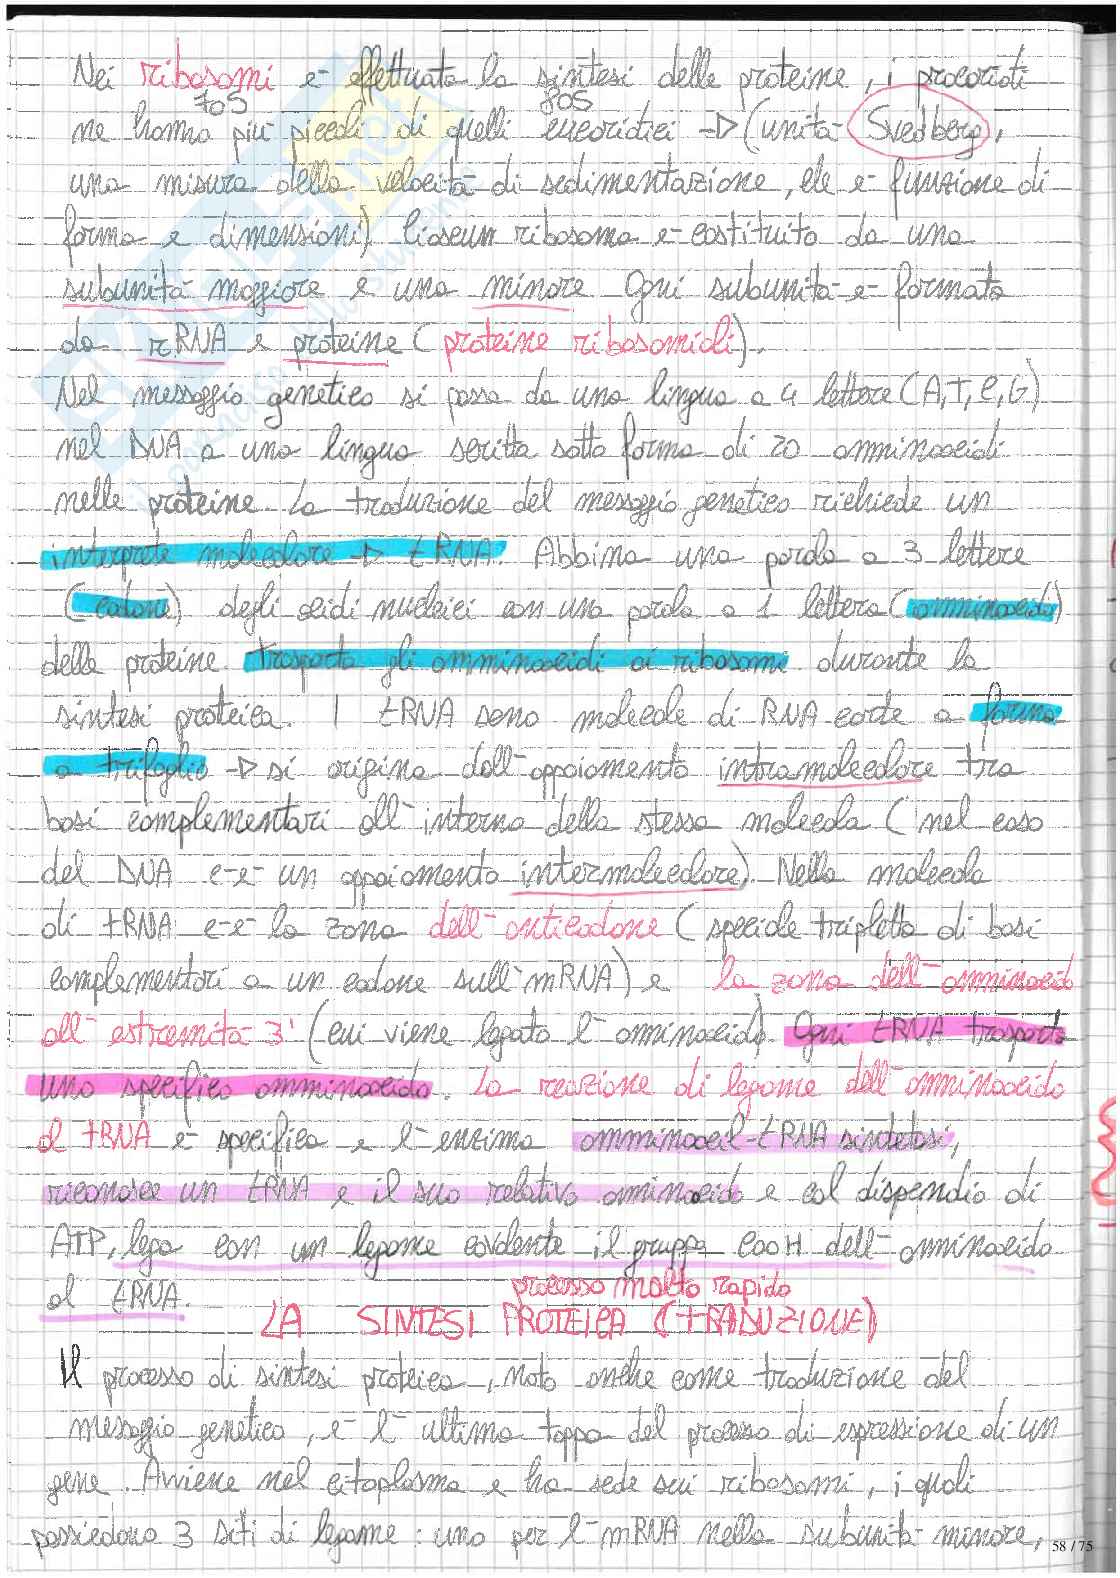 Nei ribosomi è effettuata la sintesi delle proteine, i procarioti
70S 80S
ne hanno più piccoli di quelli eucariotici → (unità Svedberg,
una misura della velocità di sedimentazione, che è funzione di
forma e dimensioni) Ciascun ribosoma è costituito da una
subunità maggiore e una minore Ogni subunità è formata
da rRNA e proteine (proteine ribosomiali).
Nel messaggio genetico si passa da una lingua a 4 lettere (A,T,C,G)
nel DNA a una lingua scritta sotto forma di 20 amminoacidi
nelle proteine La traduzione del messaggio genetico richiede un
interprete molecolare → tRNA. Abbina una parola a 3 lettere
(codone) degli acidi nucleici con una parola a 1 lettera (amminoacido)
delle proteine. trasporta gli amminoacidi ai ribosomi durante la
sintesi proteica. I tRNA sono molecole di RNA corte a forma
a trifoglio → si origina dall'appaiamento intramolecolare tra
basi complementari all'interno della stessa molecola (nel caso
del DNA c'è un appaiamento intermolecolare). Nella molecola
di tRNA c'è la zona dell'anticodone (speciale tripletta di basi
complementari a un codone sull'mRNA) e la zona dell'amminoacido
all'estremità 3' (cui viene legato l'amminoacido). Ogni tRNA trasporta
uno specifico amminoacido. La reazione di legame dell'amminoacido
al tRNA è specifica e l'enzima amminoacil-tRNA sintetasi,
riconosce un tRNA e il suo relativo amminoacido e col dispendio di
ATP, lega con un legame covalente il gruppo COOH dell'amminoacido
al tRNA.
processo molto rapido
LA SINTESI PROTEICA (TRADUZIONE)
Il processo di sintesi proteica, noto anche come traduzione del
messaggio genetico, è l'ultima tappa del processo di espressione di un
gene. Avviene nel citoplasma e ha sede sui ribosomi, i quali
possiedono 3 siti di legame: uno per l'mRNA nella subunità minore,
58 / 75